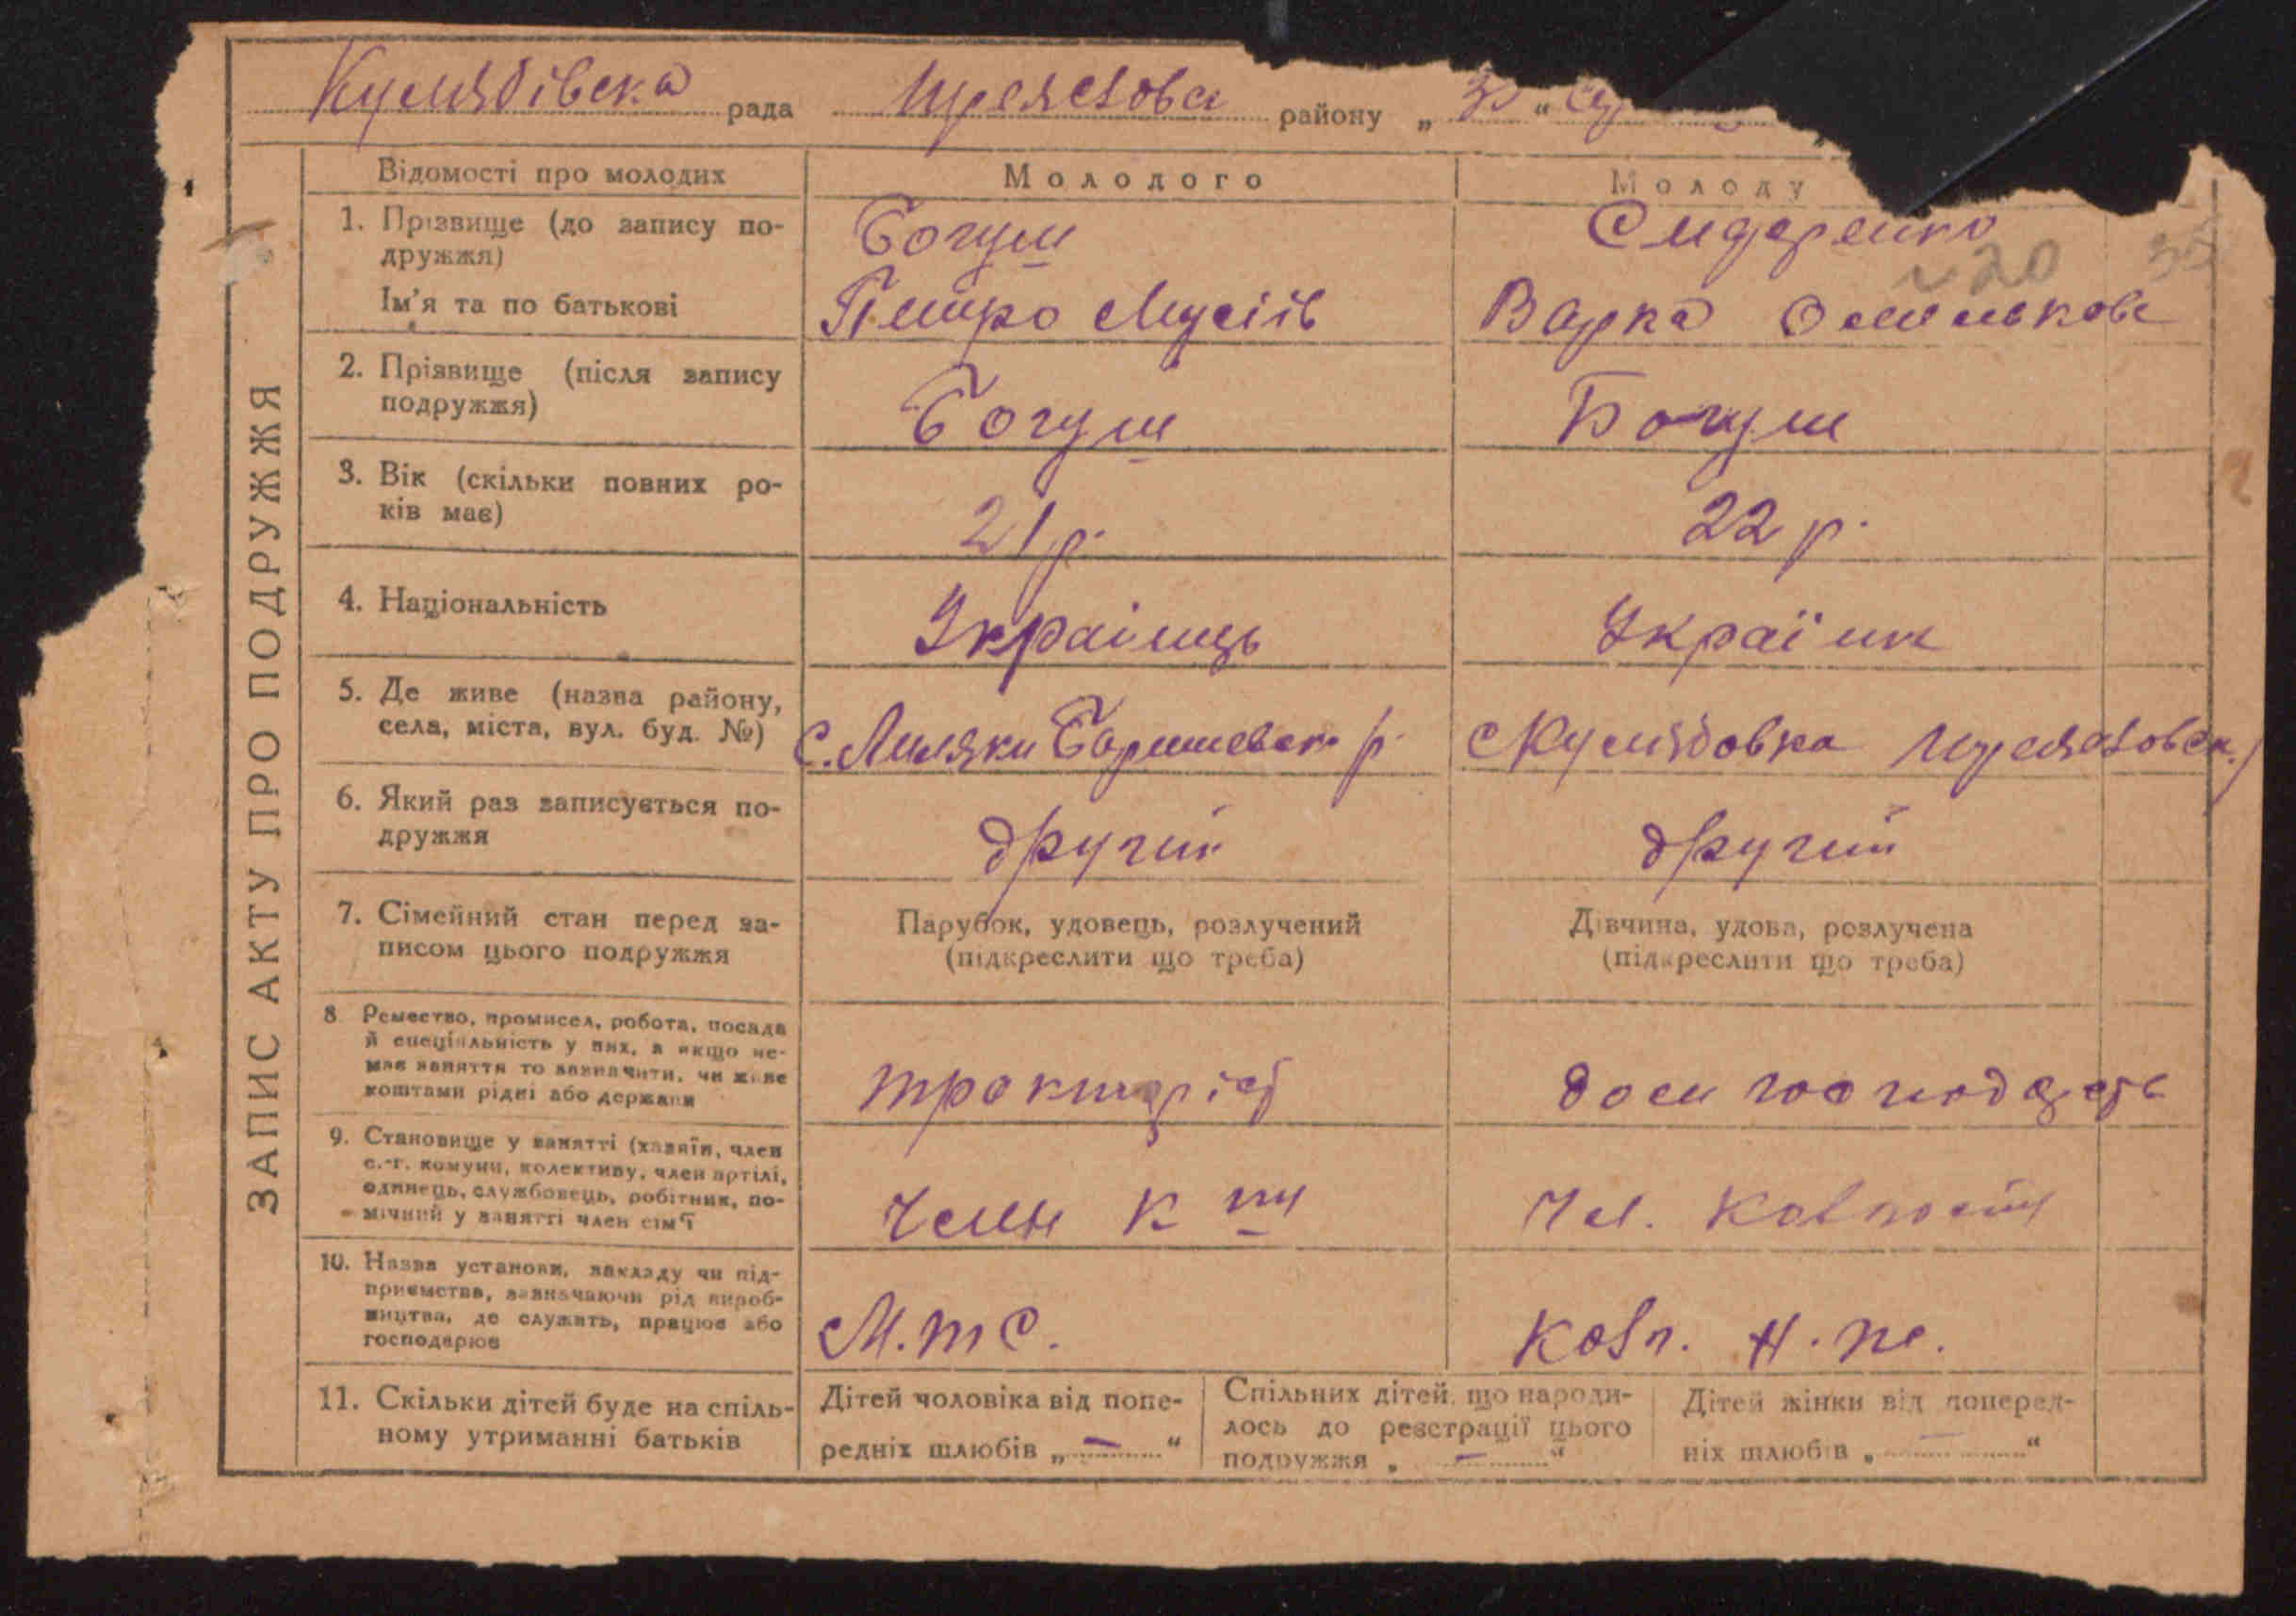 Кулябівска рада района „ 3 “
ЗАПИС АКТУ ПРО ПОДРУЖЖЯ
Відомості про молодих Молодого Молоду
1. Прізвище (до запису по-
дружжя) Богуш Сидоренко
20 35
Ім'я та по батькові Петро Мусіїв Варка Омелькова
2. Прізвище (після запису
подружжя) Богуш Богуш
3. Вік (скільки повних ро-
ків має) 21 р. 22 р.
4. Національність Українець Україн
5. Де живе (назва району,
села, міста, вул. буд. №) с. Лиляки Баришевск р. с Кулябовка
6. Який раз записується по-
дружжя другий другий
7. Сімейний стан перед за-
писом цього подружжя
Парубок, удовець, розлучений
(підкреслити що треба)
Дівчина, удова, розлучена
(підкреслити що треба)
8 Ремество, промисел, робота, посада
й спеціяльність у них, а якщо не-
має заняття то зазначити, чи живе
коштами рідні або держави тракторіст дом господарств
9. Становище у занятті (хазяїн, член
с.-г. комуни, колективу, член артілі,
одинець, службовець, робітник, по-
мічний у занятті член сім'ї Член к пу Чл. Колгоспу
10. Назва установи, закладу чи під-
приємства, зазначаючи рід вироб-
ництва, де служить, працює або
господарює М.Т.С. Колг.
11. Скільки дітей буде на спіль-
ному утриманні батьків
Дітей чоловіка від попе-
редніх шлюбів „ — “
Спільних дітей, що народи-
лось до реєстрації цього
подружжя „ — “
Дітей жінки від поперед-
ніх шлюбів „ — “